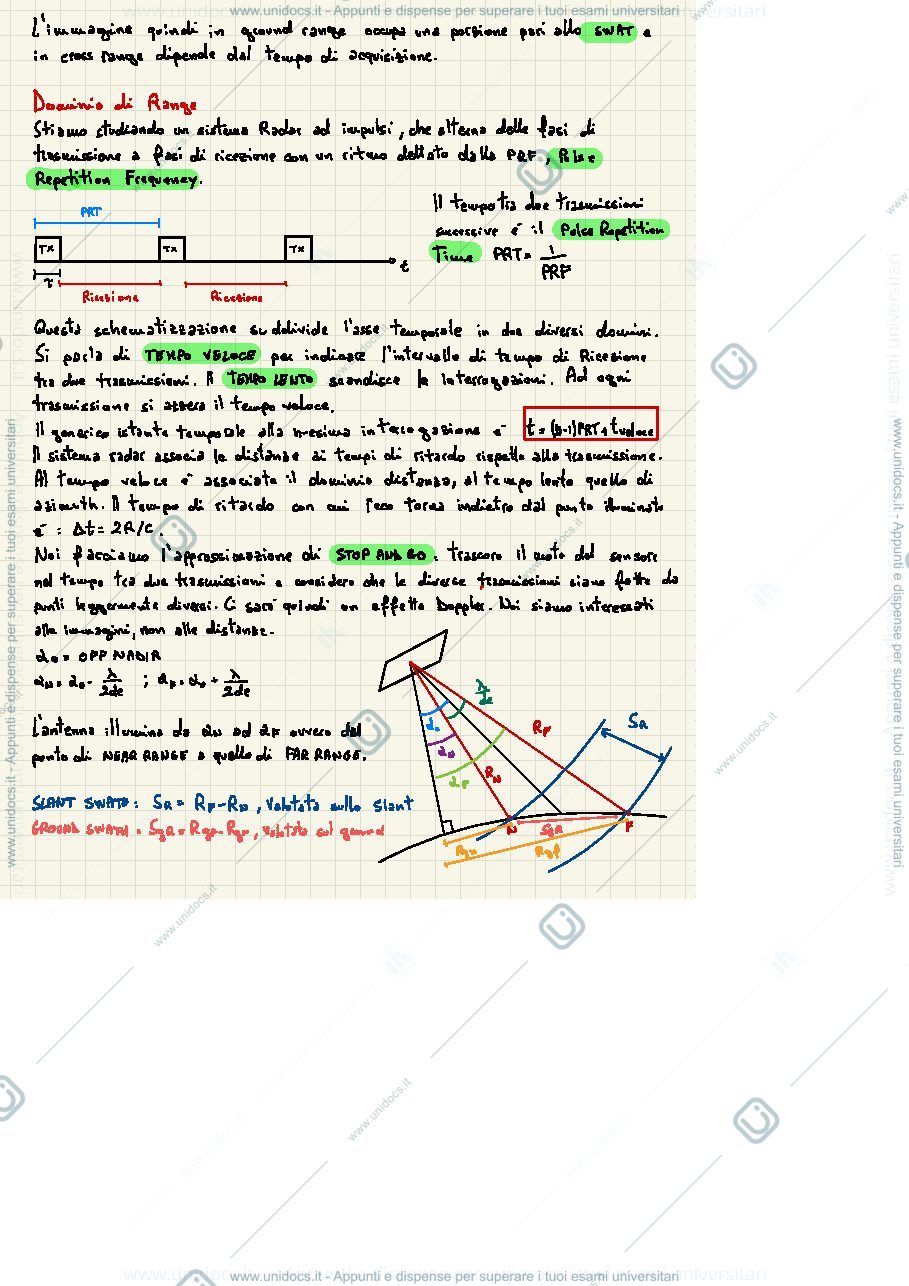 www.unidocs.it - Appunti e dispense per superare i tuoi esami universitari
L'immagine quindi in ground range occupa una porzione pari allo SWAT e
in cross range dipende dal tempo di acquisizione.
Dominio di Range
Stiamo studiando un sistema Radar ad impulsi, che alterna delle fasi di
trasmissione a fasi di ricezione con un ritmo dettato dalla PRF, Pulse
Repetition Frequency.
PRT
TX TX TX
t
τ
Ricezione Ricezione
Il tempo tra due trasmissioni
successive è il Pulse Repetition
Time PRT = 1/PRF
Questa schematizzazione suddivide l'asse temporale in due diversi domini.
Si parla di TEMPO VELOCE per indicare l'intervallo di tempo di Ricezione
tra due trasmissioni. Il TEMPO LENTO scandisce le interrogazioni. Ad ogni
trasmissione si azzera il tempo veloce.
Il generico istante temporale alla n-esima interrogazione è t = (n-1)PRT + t veloce
Il sistema radar associa le distanze ai tempi di ritardo rispetto alla trasmissione.
Al tempo veloce è associato il dominio distanza, al tempo lento quello di
azimuth. Il tempo di ritardo con cui l'eco torna indietro dal punto illuminato
è: Δt = 2R/C.
Noi facciamo l'approssimazione di STOP AND GO: trascuro il moto del sensore
nel tempo tra due trasmissioni e considero che le diverse trasmissioni siano fatte da
punti leggermente diversi. Ci sarà quindi un effetto Doppler. Noi siamo interessati
alle immagini, non alle distanze.
α₀ = OFF NADIR
αN = α₀ - λ/2de ; αF = α₀ + λ/2de
L'antenna illumina da αN ad αF ovvero dal
punto di NEAR RANGE a quello di FAR RANGE.
SLANT SWATH: SR = RF - RN, valutata sullo slant
GROUND SWATH = SgR = RgF - RgN, valutata sul ground
λ/de
α₀
αN
αF
RF
RN
SR
N
SgR
F
RgN
RgF
www.unidocs.it - Appunti e dispense per superare i tuoi esami universitari